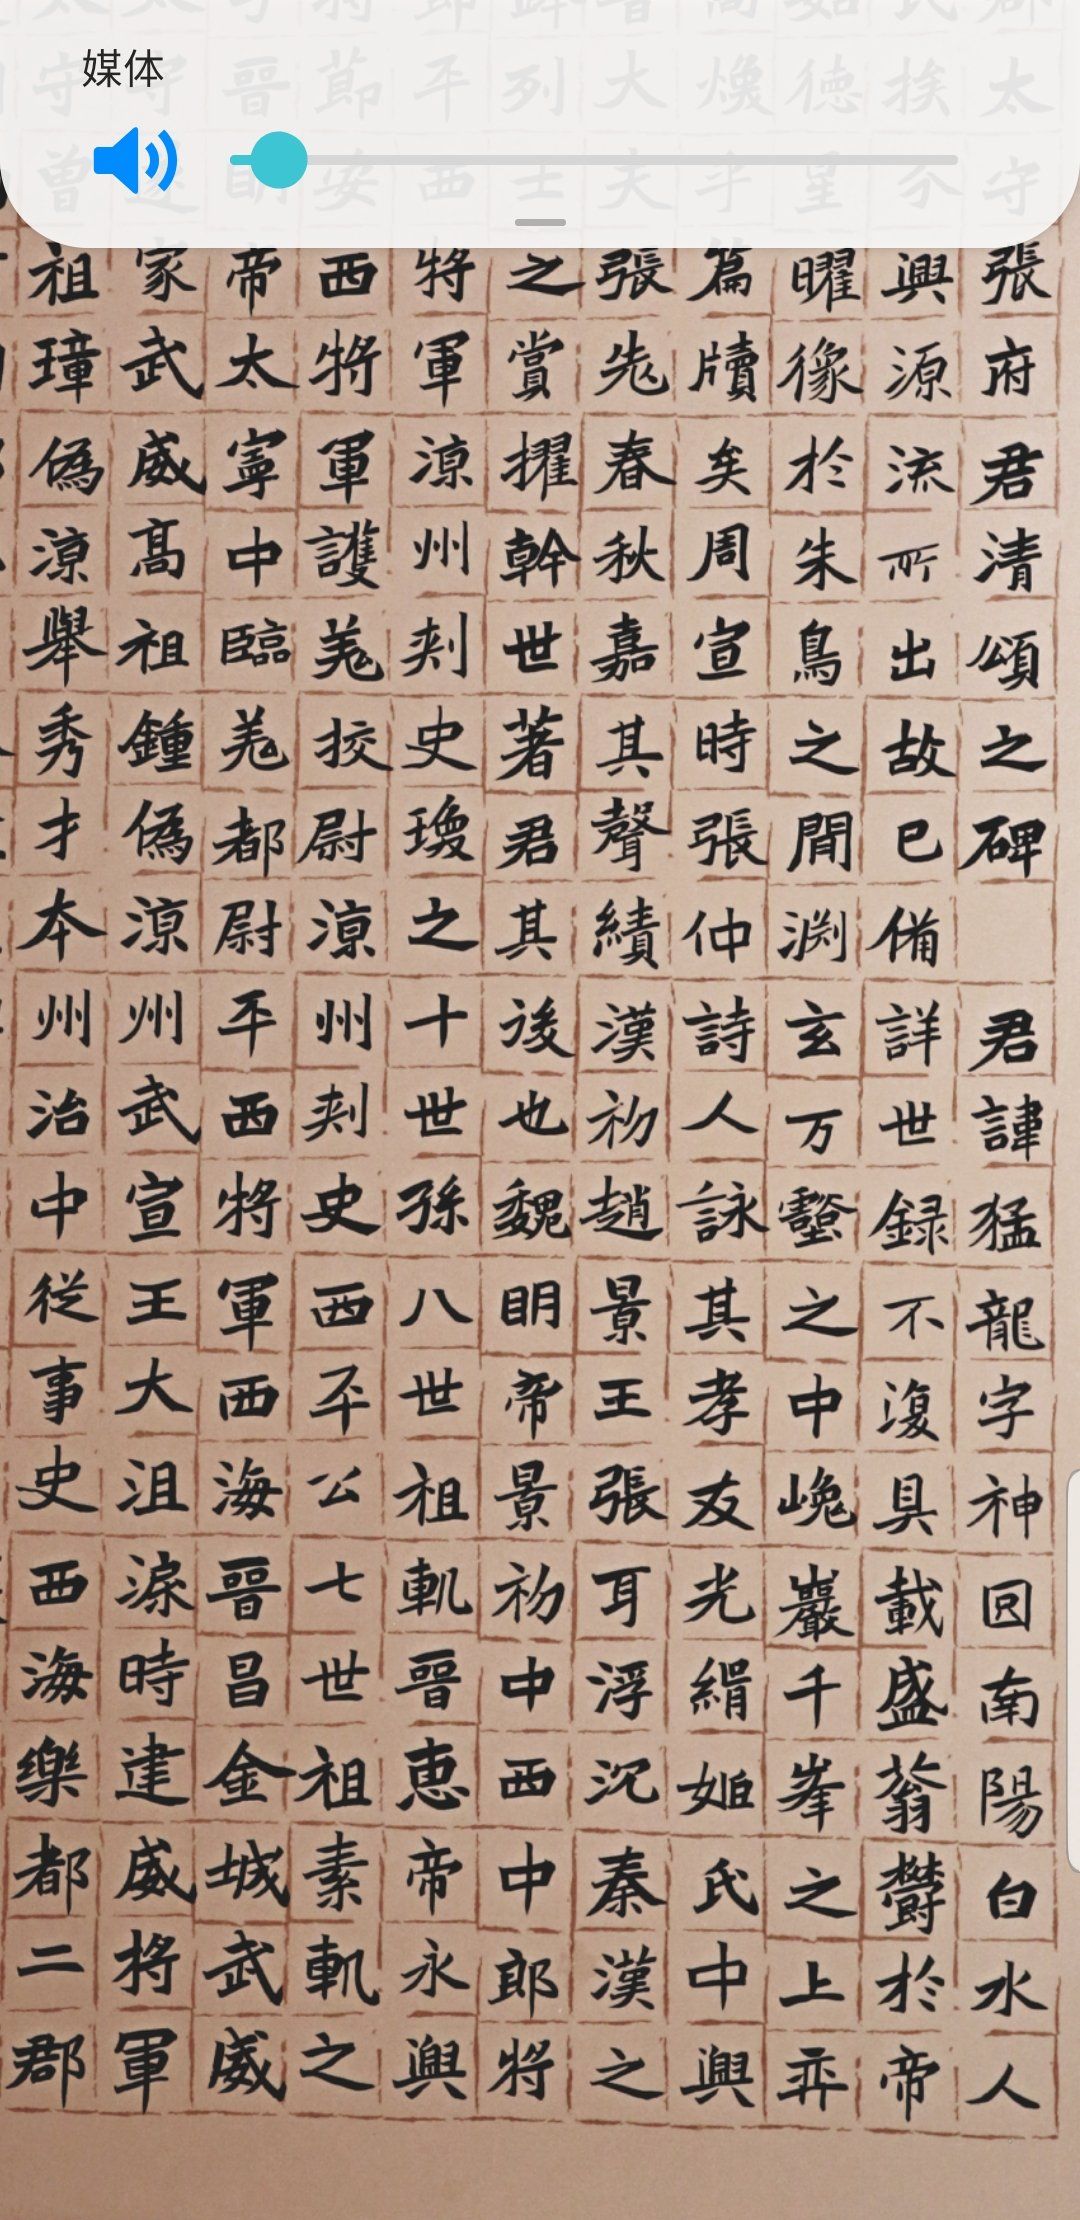 媒体
太守張府君清頌之碑 君諱猛龍字神囧南陽白水人
興源流所出故已備詳世録不復具載盛蓊鬱於帝
曜像於朱鳥之間渊玄万壑之中巉巖千峯之上弈
煥乎篇牘矣周宣時張仲詩人詠其孝友光緝姬氏中興
大夫張老春秋嘉其聲績漢初趙景王張耳浮沉秦漢之
列士之賞擢幹世著君其後也魏明帝景初中西中郎將
平西將軍涼州刺史瑍之十世孫八世祖軌晉惠帝永興
節安西將軍護羌挍尉涼州刺史西平公七世祖素軌之
晉明帝太寧中臨羌都尉平西將軍西海晉昌金城武威
遂家武威高祖鍾偽涼州武宣王大沮渠時建威將軍
守曾祖璋偽涼舉秀才本州治中從事史西海樂都二郡